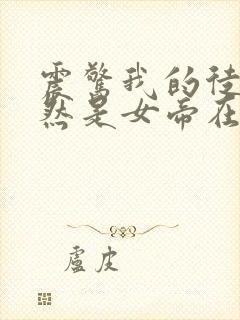 震惊我的徒
然是女帝在
卢皮